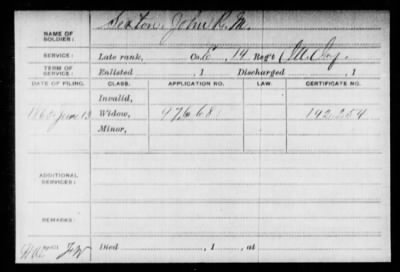 NAME OF SOLDIER: Sexton, John R. M.
SERVICE: Late rank, Co. E, 14 Reg't Ill Inf
TERM OF SERVICE: Enlisted , 1 Discharged , 1
DATE OF FILING. CLASS. APPLICATION NO. LAW. CERTIFICATE NO.
Invalid,
June 13 Widow, 97668 142.254
Minor,
ADDITIONAL SERVICES:
REMARKS:
Died , 1 , at